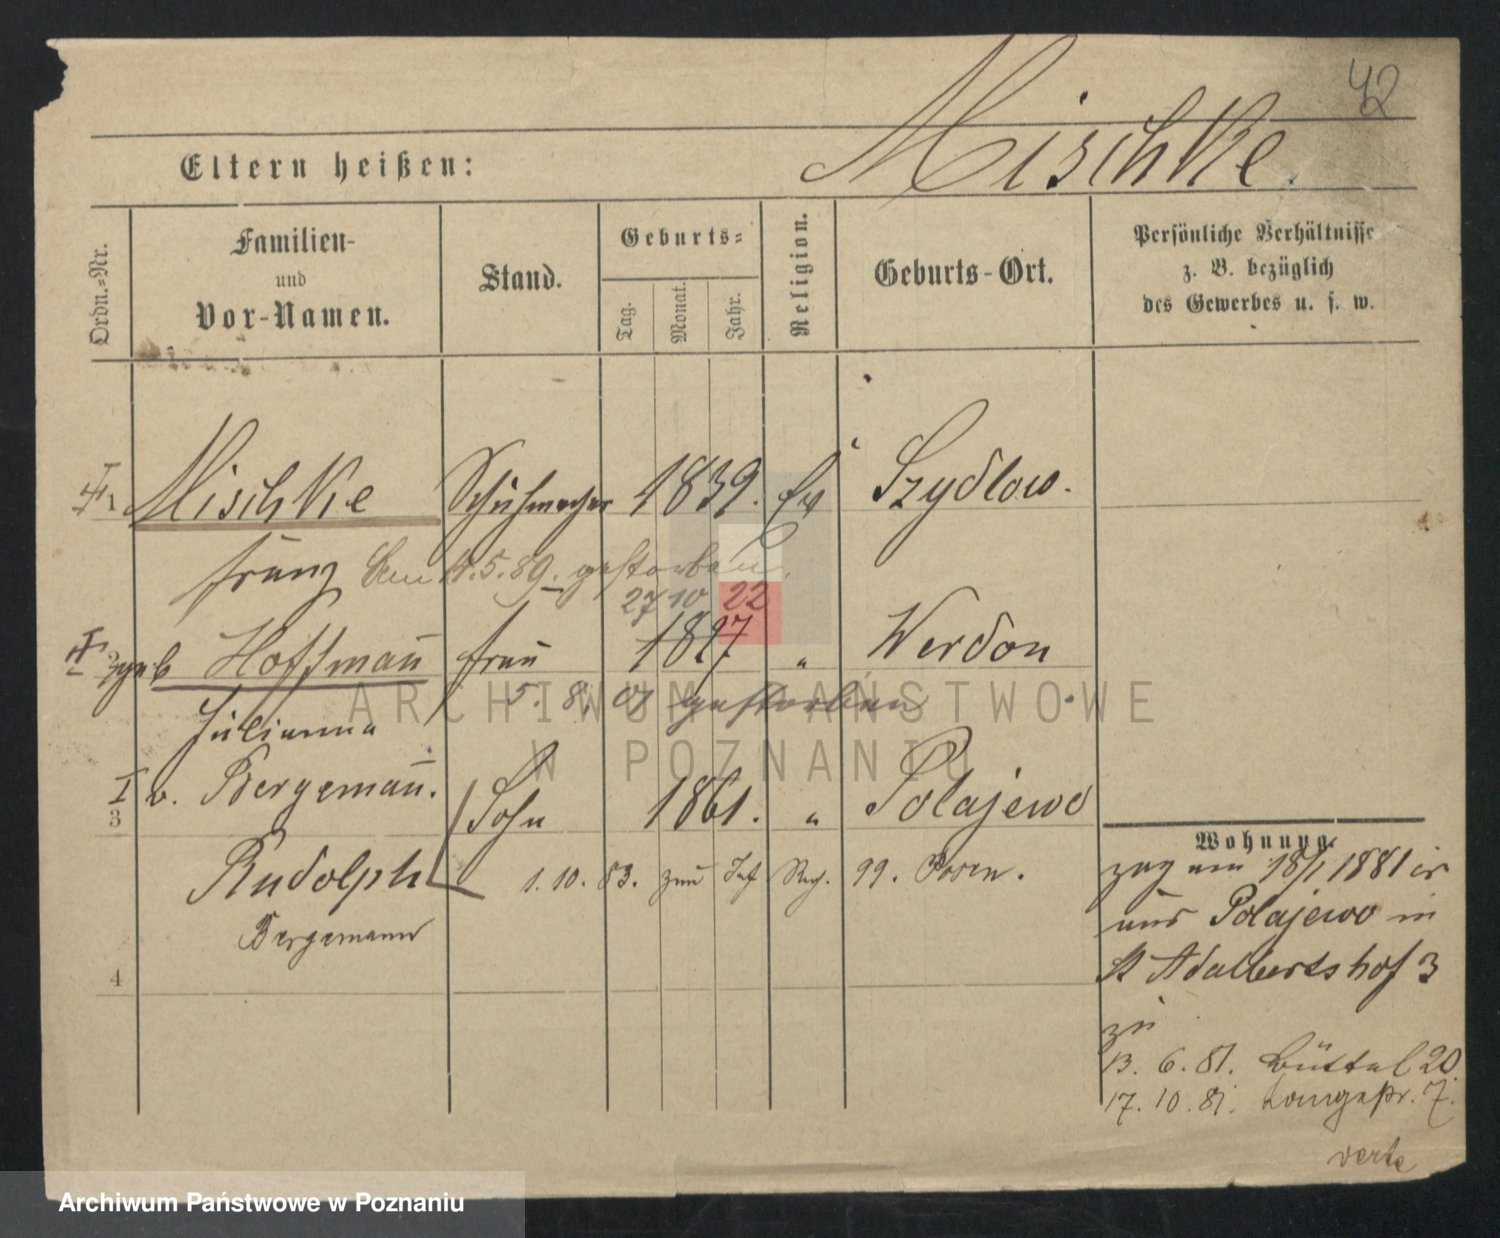 42
Mischke.
Eltern heißen:
Ordn.-Nr.
Familien- und Vor-Namen.
Stand.
Geburts-
Tag. Monat. Jahr.
Religion.
Geburts-Ort.
Persönliche Verhältnisse z. B. bezüglich des Gewerbes u. s. w.
1 Mischke Schuhmacher 1839. Ev Szydlow.
Franz am 4.5.89. gestorben.
27 10 22
2 geb Hoffmann Frau 1827 " Werdon
5. 8. 01 gestorben
Julianna
3 v. Bergemann. Sohn 1861. " Polajewo
Rudolph 1. 10. 83. zum Inf Reg. 99. Posen.
Bergemann
4
Wohnung.
zog am 18/1 1881
aus Polajewo in
St Adalbertshof 3
zu
13. 6. 81. Büttel 20
17. 10. 81. Langestr. 7.
verte
ARCHIWUM PAŃSTWOWE
W POZNANIU
Archiwum Państwowe w Poznaniu